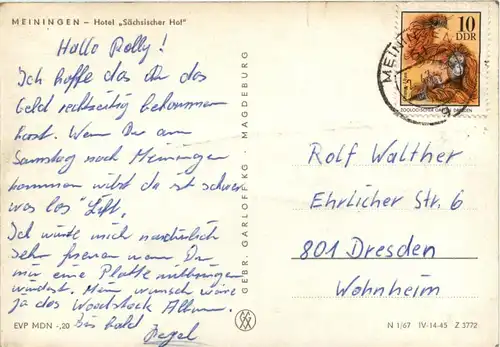 MEININGEN – Hotel „Sächsischer Hof"
Hallo Rolly!
Ich hoffe das Du das
Geld rechtzeitig bekommen
hast. Wenn Du am
Samstag nach Meiningen
kommen wirst da ist schwer
was los "Lift".
Ich würde mich natürlich
sehr freuen wenn Du
mir eine Platte mitbringen
würdest. Mein wunsch wäre
ja das Woodstock Album.
bis bald
EVP MDN -,20
GEBR. GARLOFF KG · MAGDEBURG
10
DDR
ZOOLOGISCHER GARTEN DRESDEN
MEININGEN
Rolf Walther
Ehrlicher Str. 6
801 Dresden
Wohnheim
N 1/67 IV-14-45 Z 3772